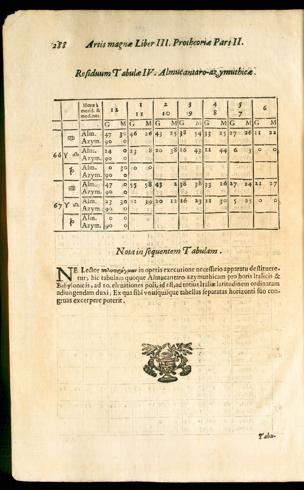 288 Artis magnæ Liber III. Protheoriæ Pars II.
Residuum Tabulæ IV. Almucantaro-azymuthicæ.
Horæ à merid. & med. noc. 12 1 11 2 10 3 9 4 8 5 7 6
G M G M G M G M G M G M G M
Alm. 47 30 46 26 43 25 38 54 33 25 27 26 21 22
Azym. 90 0
66 Alm. 24 0 23 8 20 38 16 43 11 44 6 3 0 0
Azym. 90 0
Alm. 0 30 0 0
Azym. 90 0
Alm. 47 0 38 38 33 16 27 24 21 27
Azym. 90 0
67 Alm. 23 30 20 12 16 23 11 30 5 25 0 0
Azym. 90 0
Alm. 0 0
Azym. 90 0
Nota in sequentem Tabulam.
NE Lector in operis executione necessario apparatu destituere-
tur; hic tabulam quoque Almucantaro-azymuthicam pro horis Italicis &
Babylonicis, ad 10. elevationes poli, id est, ad totius Italiæ latitudinem ordinatam
adiungendam duxi: Ex qua sibi vnusquisque tabellas separatas horizonti suo con-
gruas excerpere poterit.
Tabu-